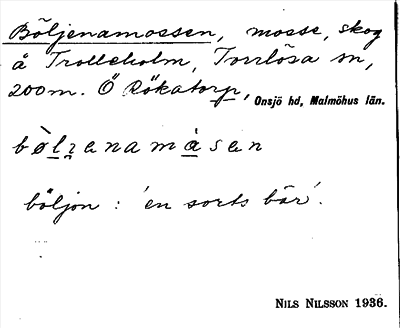 Böljenamossen, mosse, skog
å Trolleholm, Torrlösa sn,
200m. Ö Rökatorp, Onsjö hd, Malmöhus län.
bølɀenamåsen
böljon : 'en sorts bär'.
NILS NILSSON 1936.